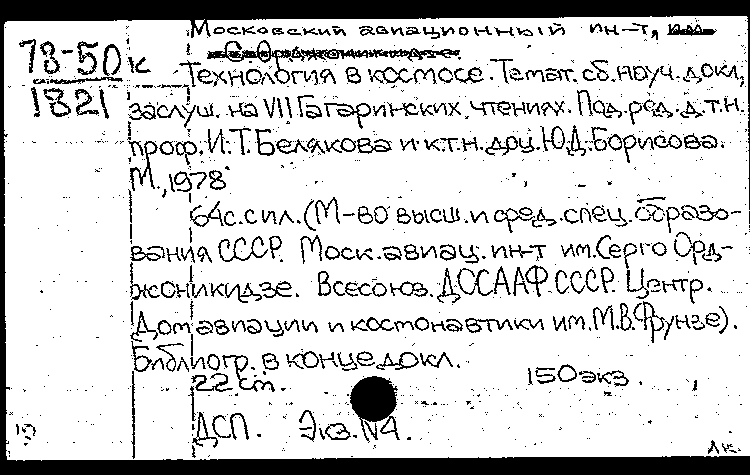 Московский авиационный ин-т, им.
С. Орджоникидзе
78-50к
1821
Технология в космосе. Темат. сб. науч. докл.,
заслуш. на VII Гагаринских чтениях. Под. ред. д.т.н.
проф. И.Т. Белякова и к.т.н. доц. Ю.Д. Борисова.
М., 1978
64с. с ил. (М-во высш. и сред. спец. образо-
вания СССР. Моск. авиац. ин-т им. Серго Орд-
жоникидзе. Всесоюз. ДОСААФ СССР. Центр.
Дом авиации и космонавтики им. М.В. Фрунзе).
Библиогр. в конце докл.
22 ст. 150 экз.
ДСП. Экз. N4.